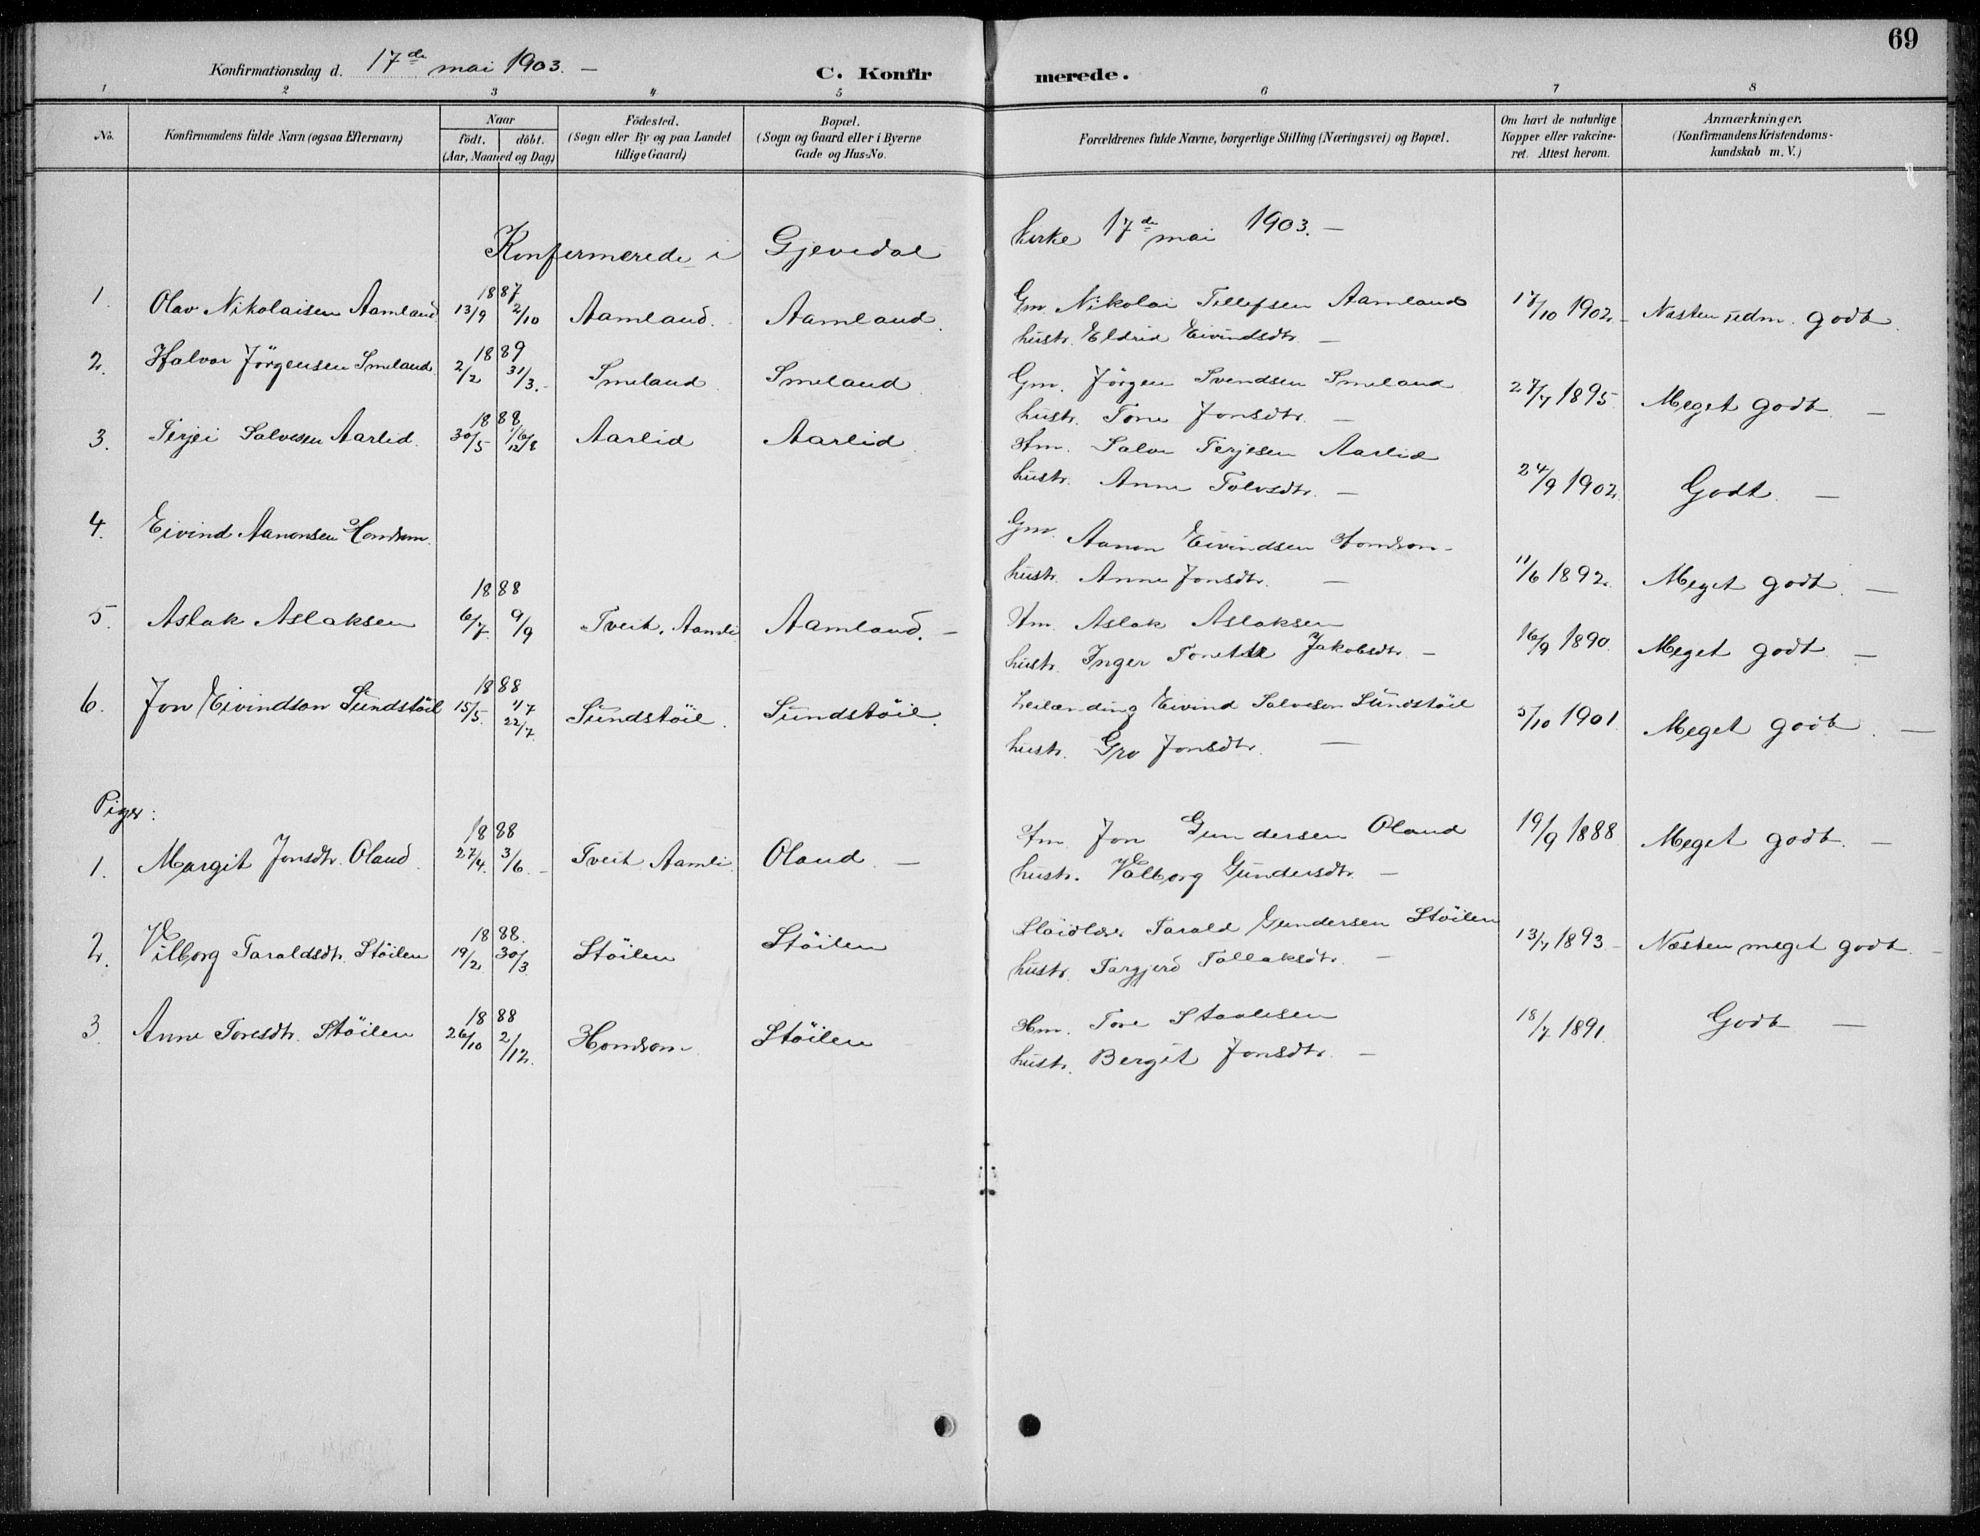 69
Konfirmationsdag d. 17de mai 1903. —
C. Konfirmerede.
1 2 3 4 5 6 7 8
No.
Konfirmandens fulde Navn (ogsaa Efternavn)
Naar
födt. döbt.
(Aar, Maaned og Dag)
Födested.
(Sogn eller By og paa Landet
tillige Gaard)
Bopæl.
(Sogn og Gaard eller i Byerne
Gade og Hus-No.
Forældrenes fulde Navne, borgerlige Stilling (Næringsvei) og Bopæl.
Om havt de naturlige
Kopper eller vakcine-
ret. Attest herom.
Anmærkninger.
(Konfirmandens Kristendoms-
kundskab m. V.)
Konfermerede i Gjevedal kirke 17de mai 1903. —
1. Olav Nikolaisen Aamland 1887 13/9 2/10 Aamland. Aamland. Gm. Nikolai Tellefsen Aamland 17/10 1902. Næsten udm. godt.
hustr. Eldrid Eivindsdtr. —
2. Halvor Jörgensen Smeland 1889 2/2 31/3. Smeland Smeland Gm. Jörgen Svendsen Smeland 27/7 1895 Meget godt. —
hustr. Tone Jonsdtr. —
3. Terjei Salvesen Aarlid. 1888 30/5 Aarlid Aarlid Hm. Salve Terjesen Aarlid
hustr. Anne Tolvsdtr. — 24/9 1902. Godt. —
4. Eivind Aanonsen Homdrom. Gm. Aanon Eivindsen Homdrom
hustr. Anne Jonsdtr. — 11/6 1892. Meget godt. —
5. Aslak Aslaksen 1888 6/7 9/9 Tveit, Aamli Aamland. — Hm. Aslak Aslaksen
hustr. Inger Tonette Jakobsdtr. — 16/9 1890. Meget godt —
6. Jon Eivindson Sundstöil 1888 15/5. 22/7. Sundstöil. Sundstöil. Leilænding Eivind Salveson Sundstöil 5/10 1901. Meget godt. —
hustr. Gro Jonsdtr. —
Piger:
1. Margit Jonsdtr. Oland 1888 27/4. 3/6. Tveit Aamli. Oland. — Hm. Jon Gundersen Oland 19/9 1888 Meget godt. —
hustr. Valborg Gundersdtr. —
2. Vilborg Taraldsdtr. Stöilen 1888. 19/2 30/3 Stöilen Stöilen Tarald Gundersen Stöilen 13/7 1893. — Næsten meget godt. —
hustr. Targjerd Tallaksdtr. —
3. Anne Toresdtr. Stöilen 1888 26/10 2/12. Homdrom Stöilen Hm. Tore Staalesen 18/7 1891. Godt —
hustr. Bergit Jonsdtr. —